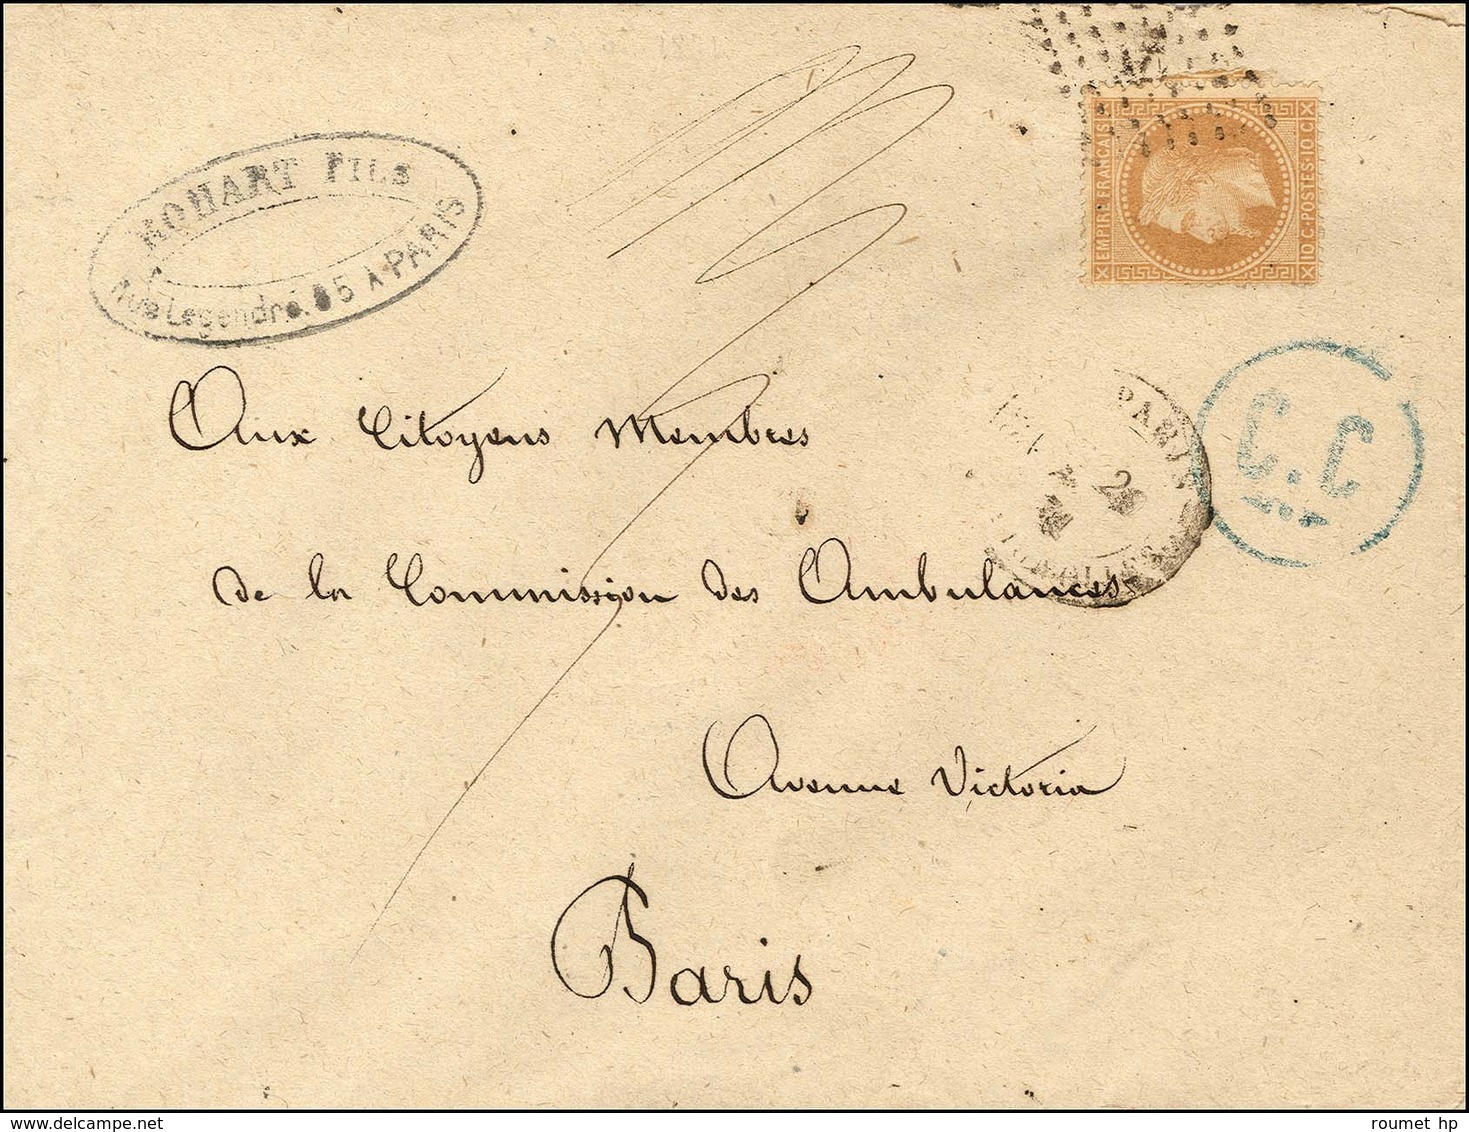 FILS
Rue Legendre. 5 A PARIS
EMPIRE FRANÇAIS
10 C. POSTES. 10 C.
PARIS
2
C.C
Aux Citoyens Membres
de la Commission des Ambulances
Avenue Victoria
Paris
roumet hp